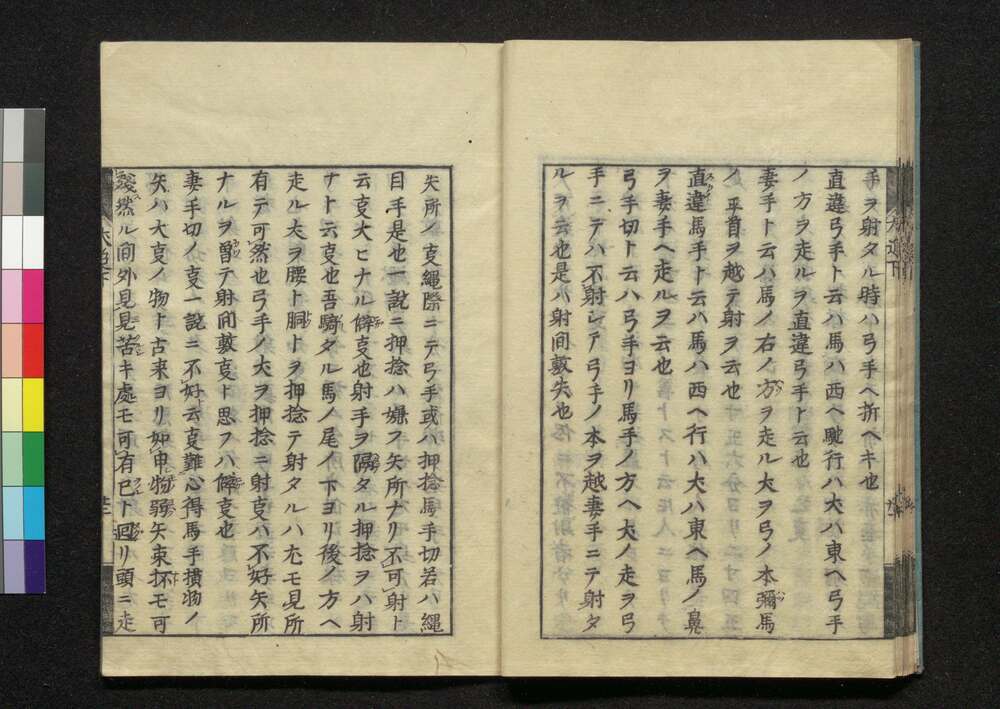 手ヲ射タル時ハ弓手ヘ折ヘキ也
直違弓手ト云ハ馬ハ西ヘ馳行ハ犬ハ東ヘ弓手
ノ方ヲ走ルヲ直違弓手ト云也
妻手ト云ハ馬ノ右ノ方ヲ走ル犬ヲ弓ノ本彌馬
ノ平首ヲ越テ射ヲ云也
直違馬手ト云ハ馬ハ西ヘ行ハ犬ハ東ヘ馬ノ鼻
ヲ妻手ヘ走ルヲ云也
弓手切ト云ハ弓手ヨリ馬手ノ方ヘ犬ノ走ヲ弓
手ニテハ不射シテ弓手ノ本ヲ越妻手ニテ射タ
ルヲ云也是ハ射間數失也
失所ノ叓繩際ニテ弓手或ハ押捻馬手切若ハ繩
目手是也一說ニ押捻ハ嫌フ矢所ナリ不可射ト
云叓大ヒナル僻叓也射手ヲ隔タル押捻ヲハ射
ナト云叓也吾騎タル馬ノ尾ノ下ヨリ後ノ方ヘ
走ル犬ヲ腰ト胴トヲ押捻テ射タルハ尤モ見所
有テ可然也弓手ノ犬ヲ押捻ニ射叓ハ不好矢所
ナルヲ曽テ射間數叓ト思フハ僻叓也
妻手切ノ叓一說ニ不好云叓難心得馬手横物ノ
矢ハ大叓ノ物ト古来ヨリ如申物弱矢束抔モ可
緩然ル間外見見苦キ處モ可有巳ト廻リ頭ニ走